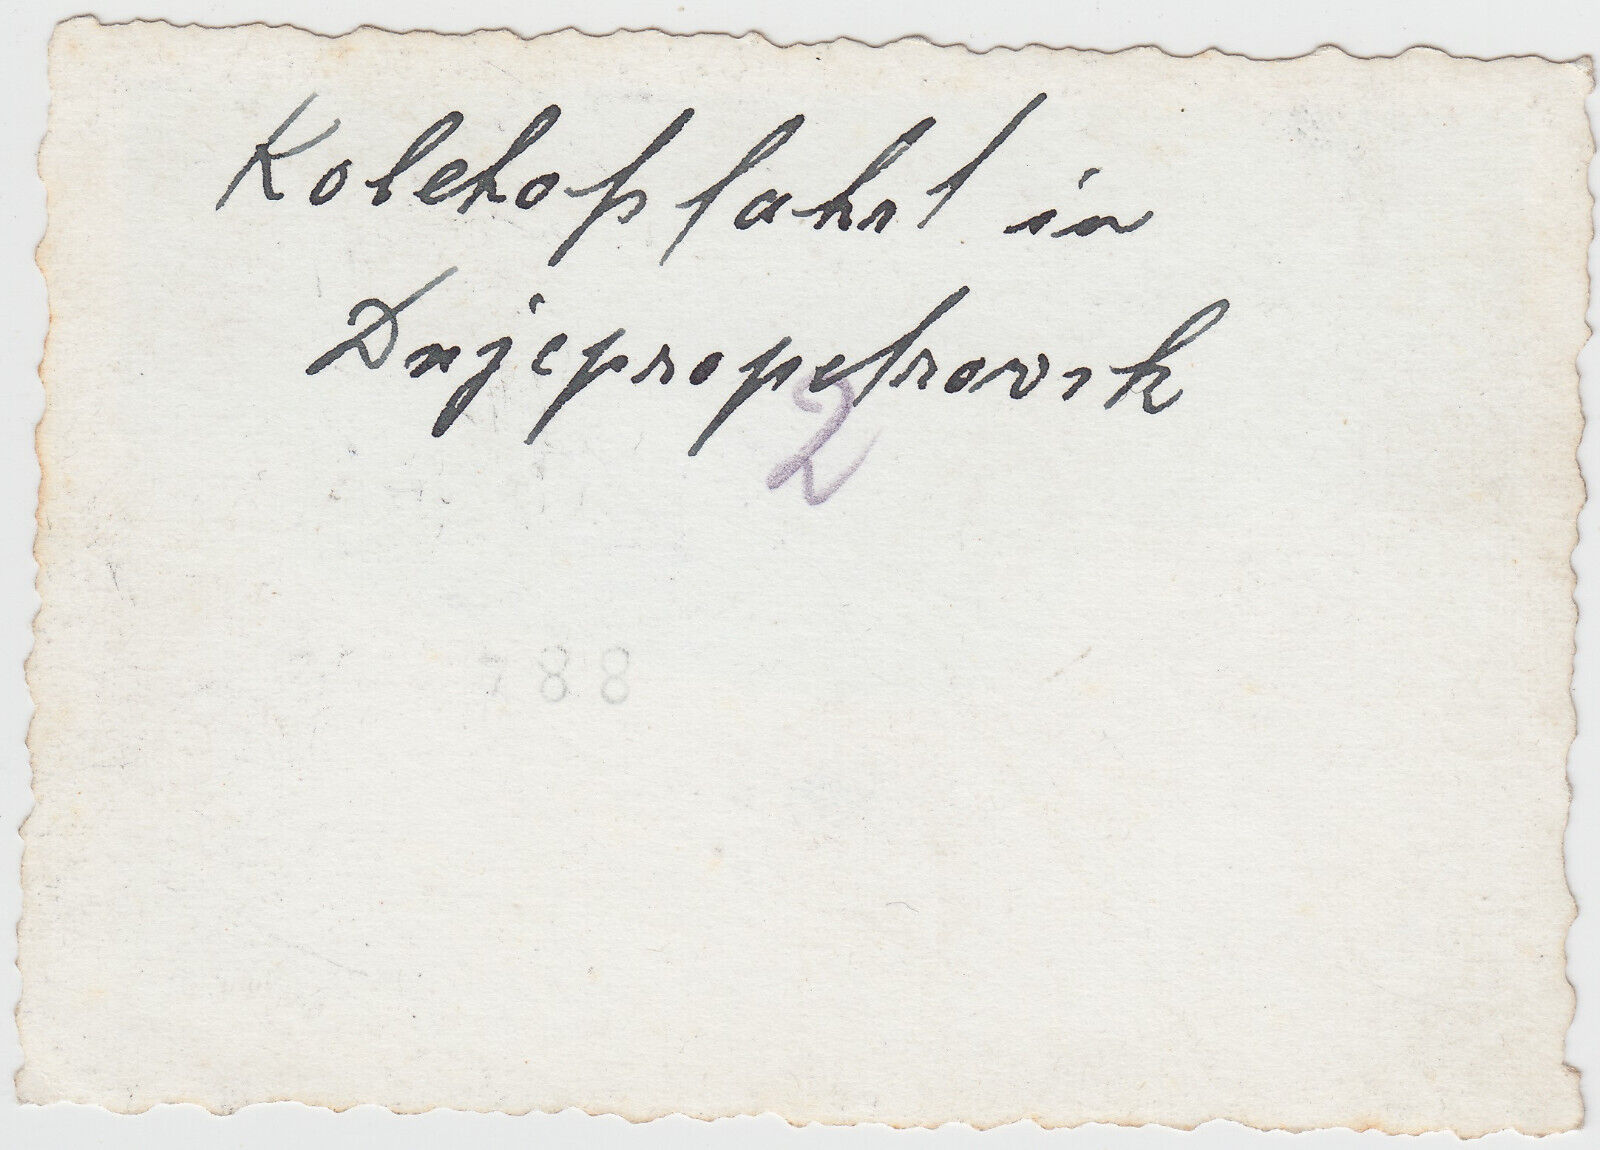 Kolchosfahrt in
Dnjepropetrovsk
2
88